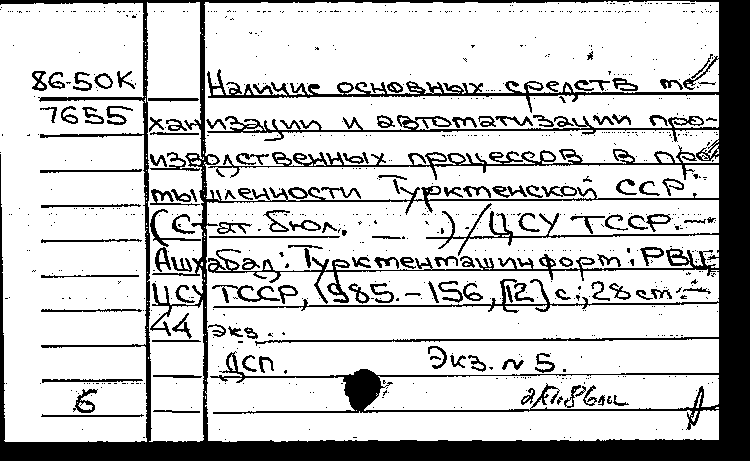 86-50К
7655
Наличие основных средств ме-
ханизации и автоматизации про-
изводственных процессов в про-
мышленности Туркменской ССР.
(Стат. бюл. ) / ЦСУ ТССР. —
Ашхабад: Туркменмашинформ: РВЦ
ЦСУ ТССР, 1985. - 156, [12] с.; 28 см. —
44 экз..
ДСП. Экз. N 5.
6